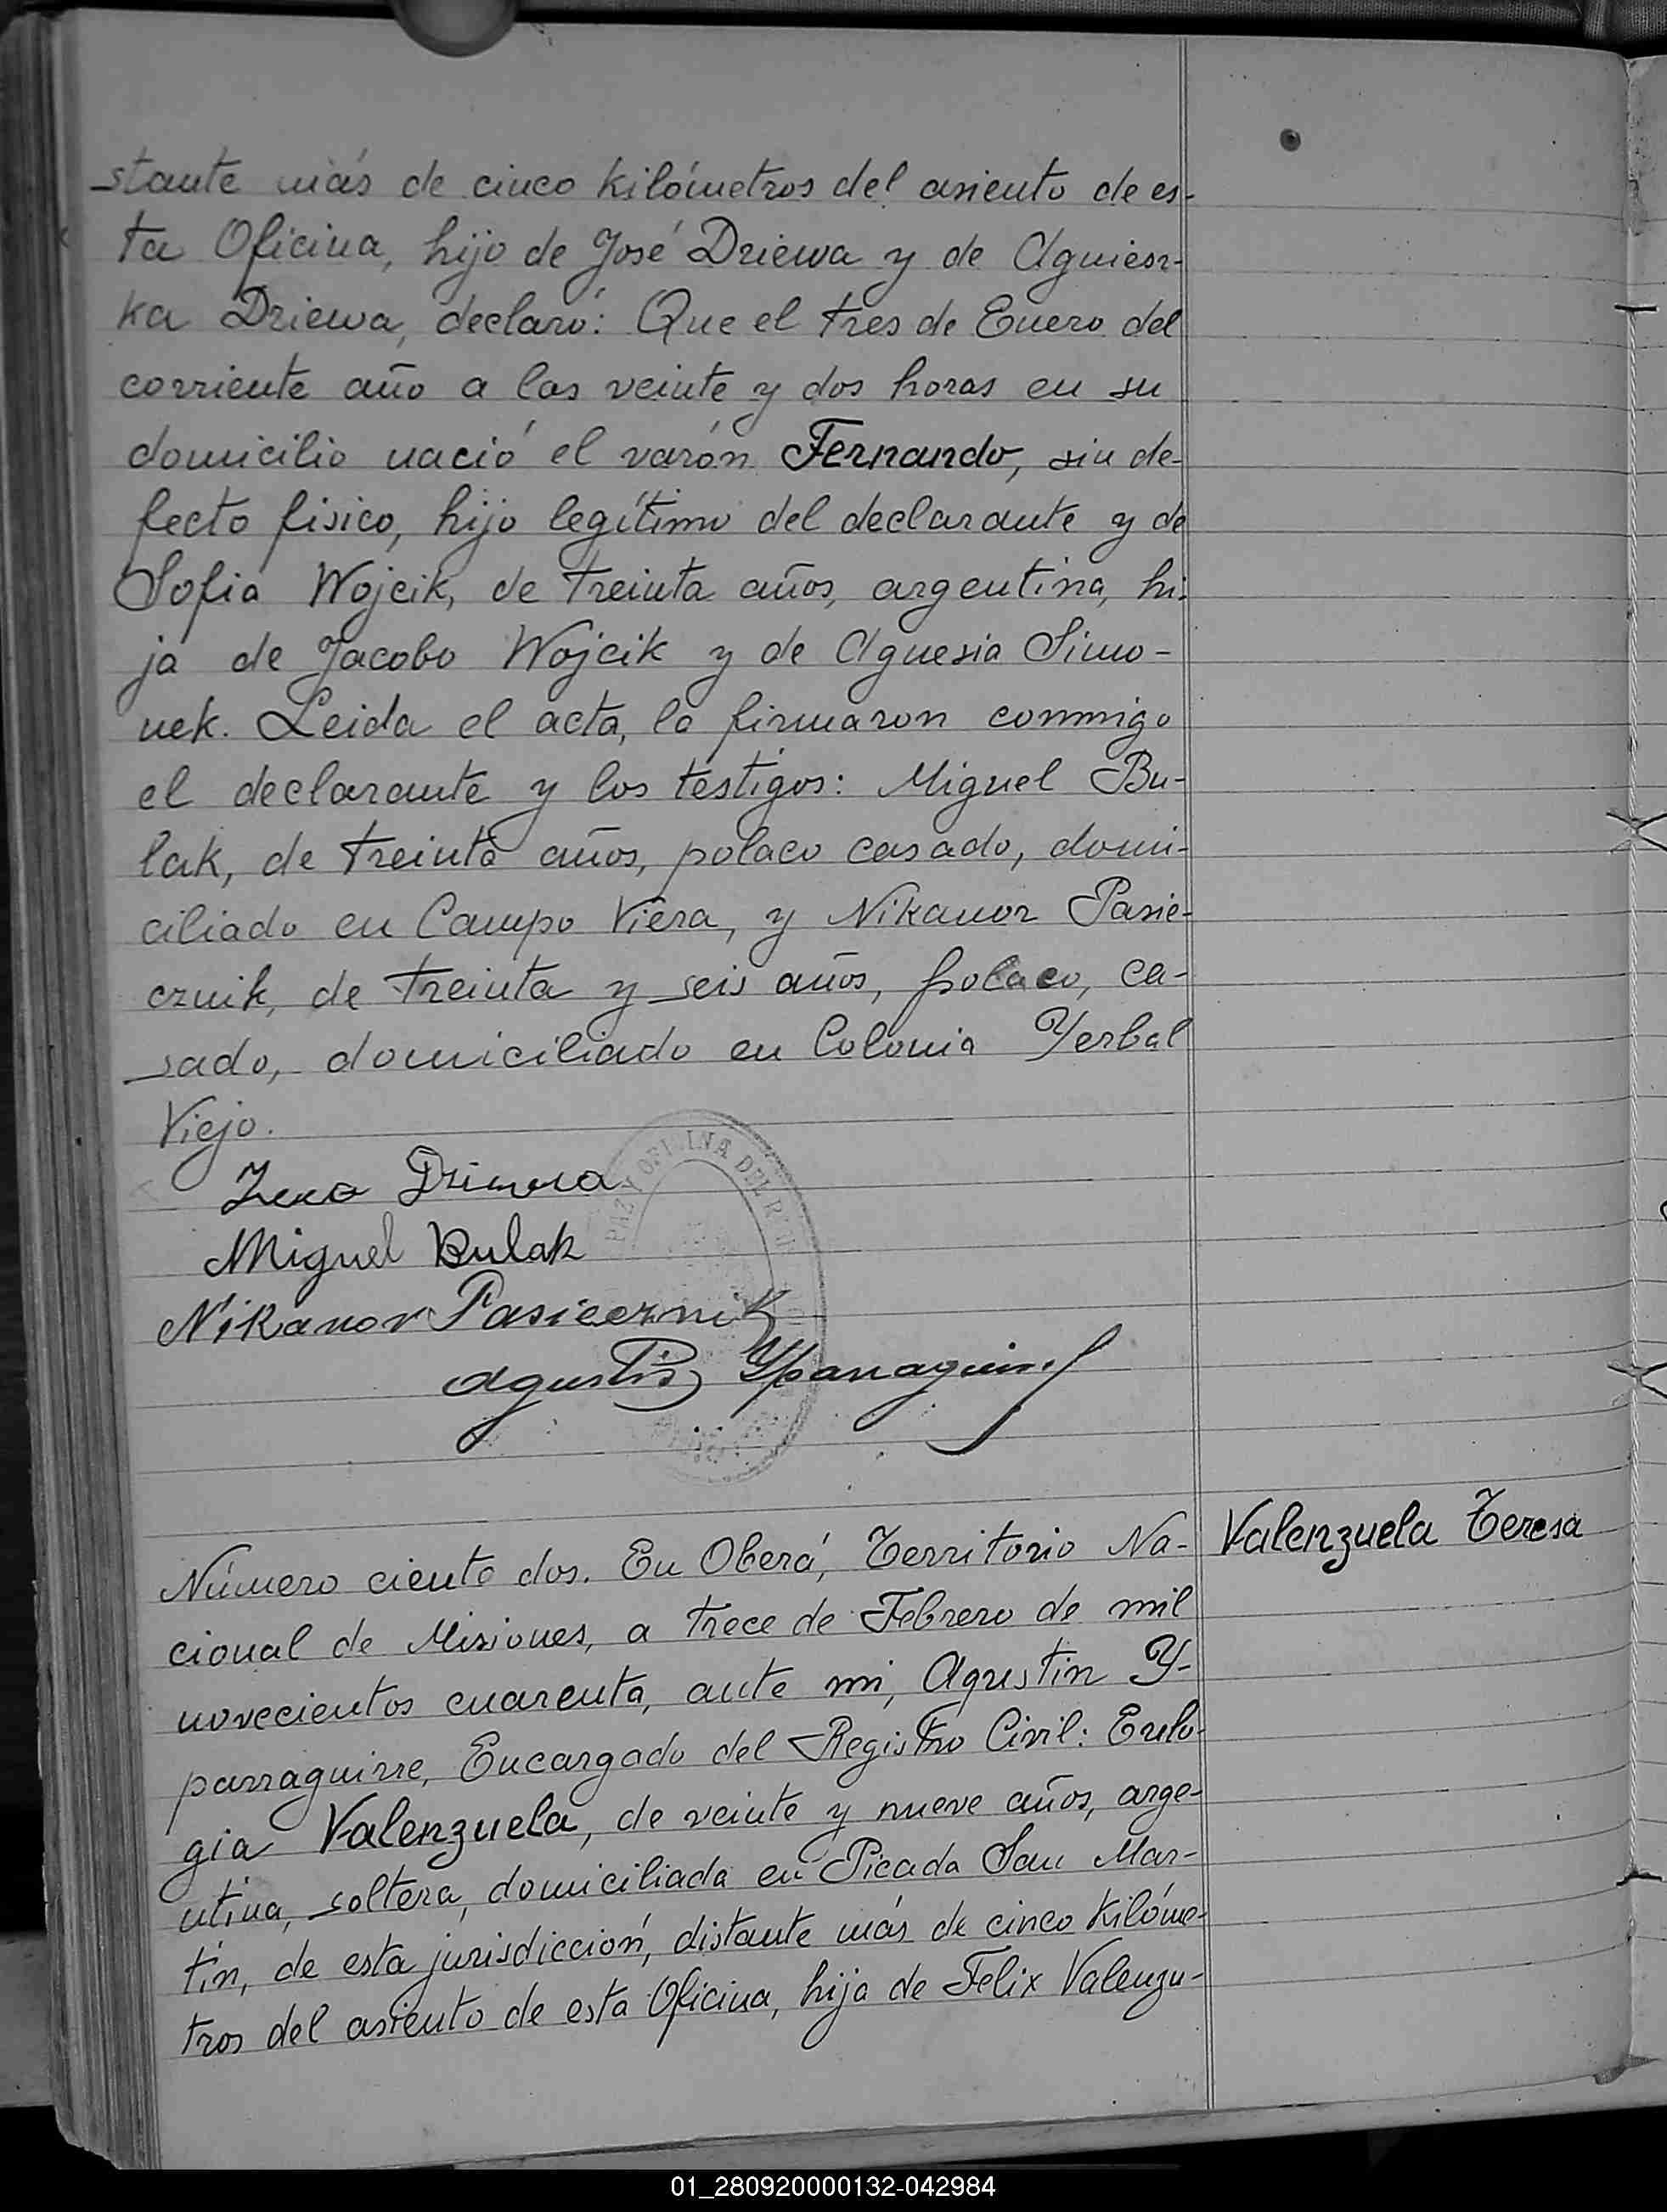 stante más de cinco kilómetros del asiento de es-
ta Oficina, hijo de José Dziewa y de Agniesz-
ka Dziewa, declaró: Que el tres de Enero del
corriente año a las veinte y dos horas en su
domicilio nació el varón Fernando, sin de-
fecto fisico, hijo legítimo del declarante y de
Sofia Wojcik, de treinta años, argentina, hi-
ja de Jacobo Wojcik y de Agnesia Simo-
nek. Leida el acta, la firmaron conmigo
el declarante y los testigos: Miguel Bu-
lak, de treinta años, polaco casado, domi-
ciliado en Campo Viera, y Nikanor Pasie-
cznik, de treinta y seis años, polaco, ca-
sado, domiciliado en Colonia Yerbal
Viejo.
Miguel Bulak
Nikanor Pasiecznik
Agustin Yparraguirre
PAZ Y OFICINA DEL
Número ciento dos. En Oberá, Territorio Na-
Valenzuela Teresa
cional de Misiones, a trece de Febrero de mil
novecientos cuarenta, ante mi, Agustin Y-
parraguirre, Encargado del Registro Civil: Eulo-
gia Valenzuela, de veinte y nueve años, arge-
ntina, soltera, domiciliada en Picada San Mar-
tín, de esta jurisdicción, distante más de cinco kilóme-
tros del asiento de esta Oficina, hija de Felix Valenzu-
01_280920000132-042984